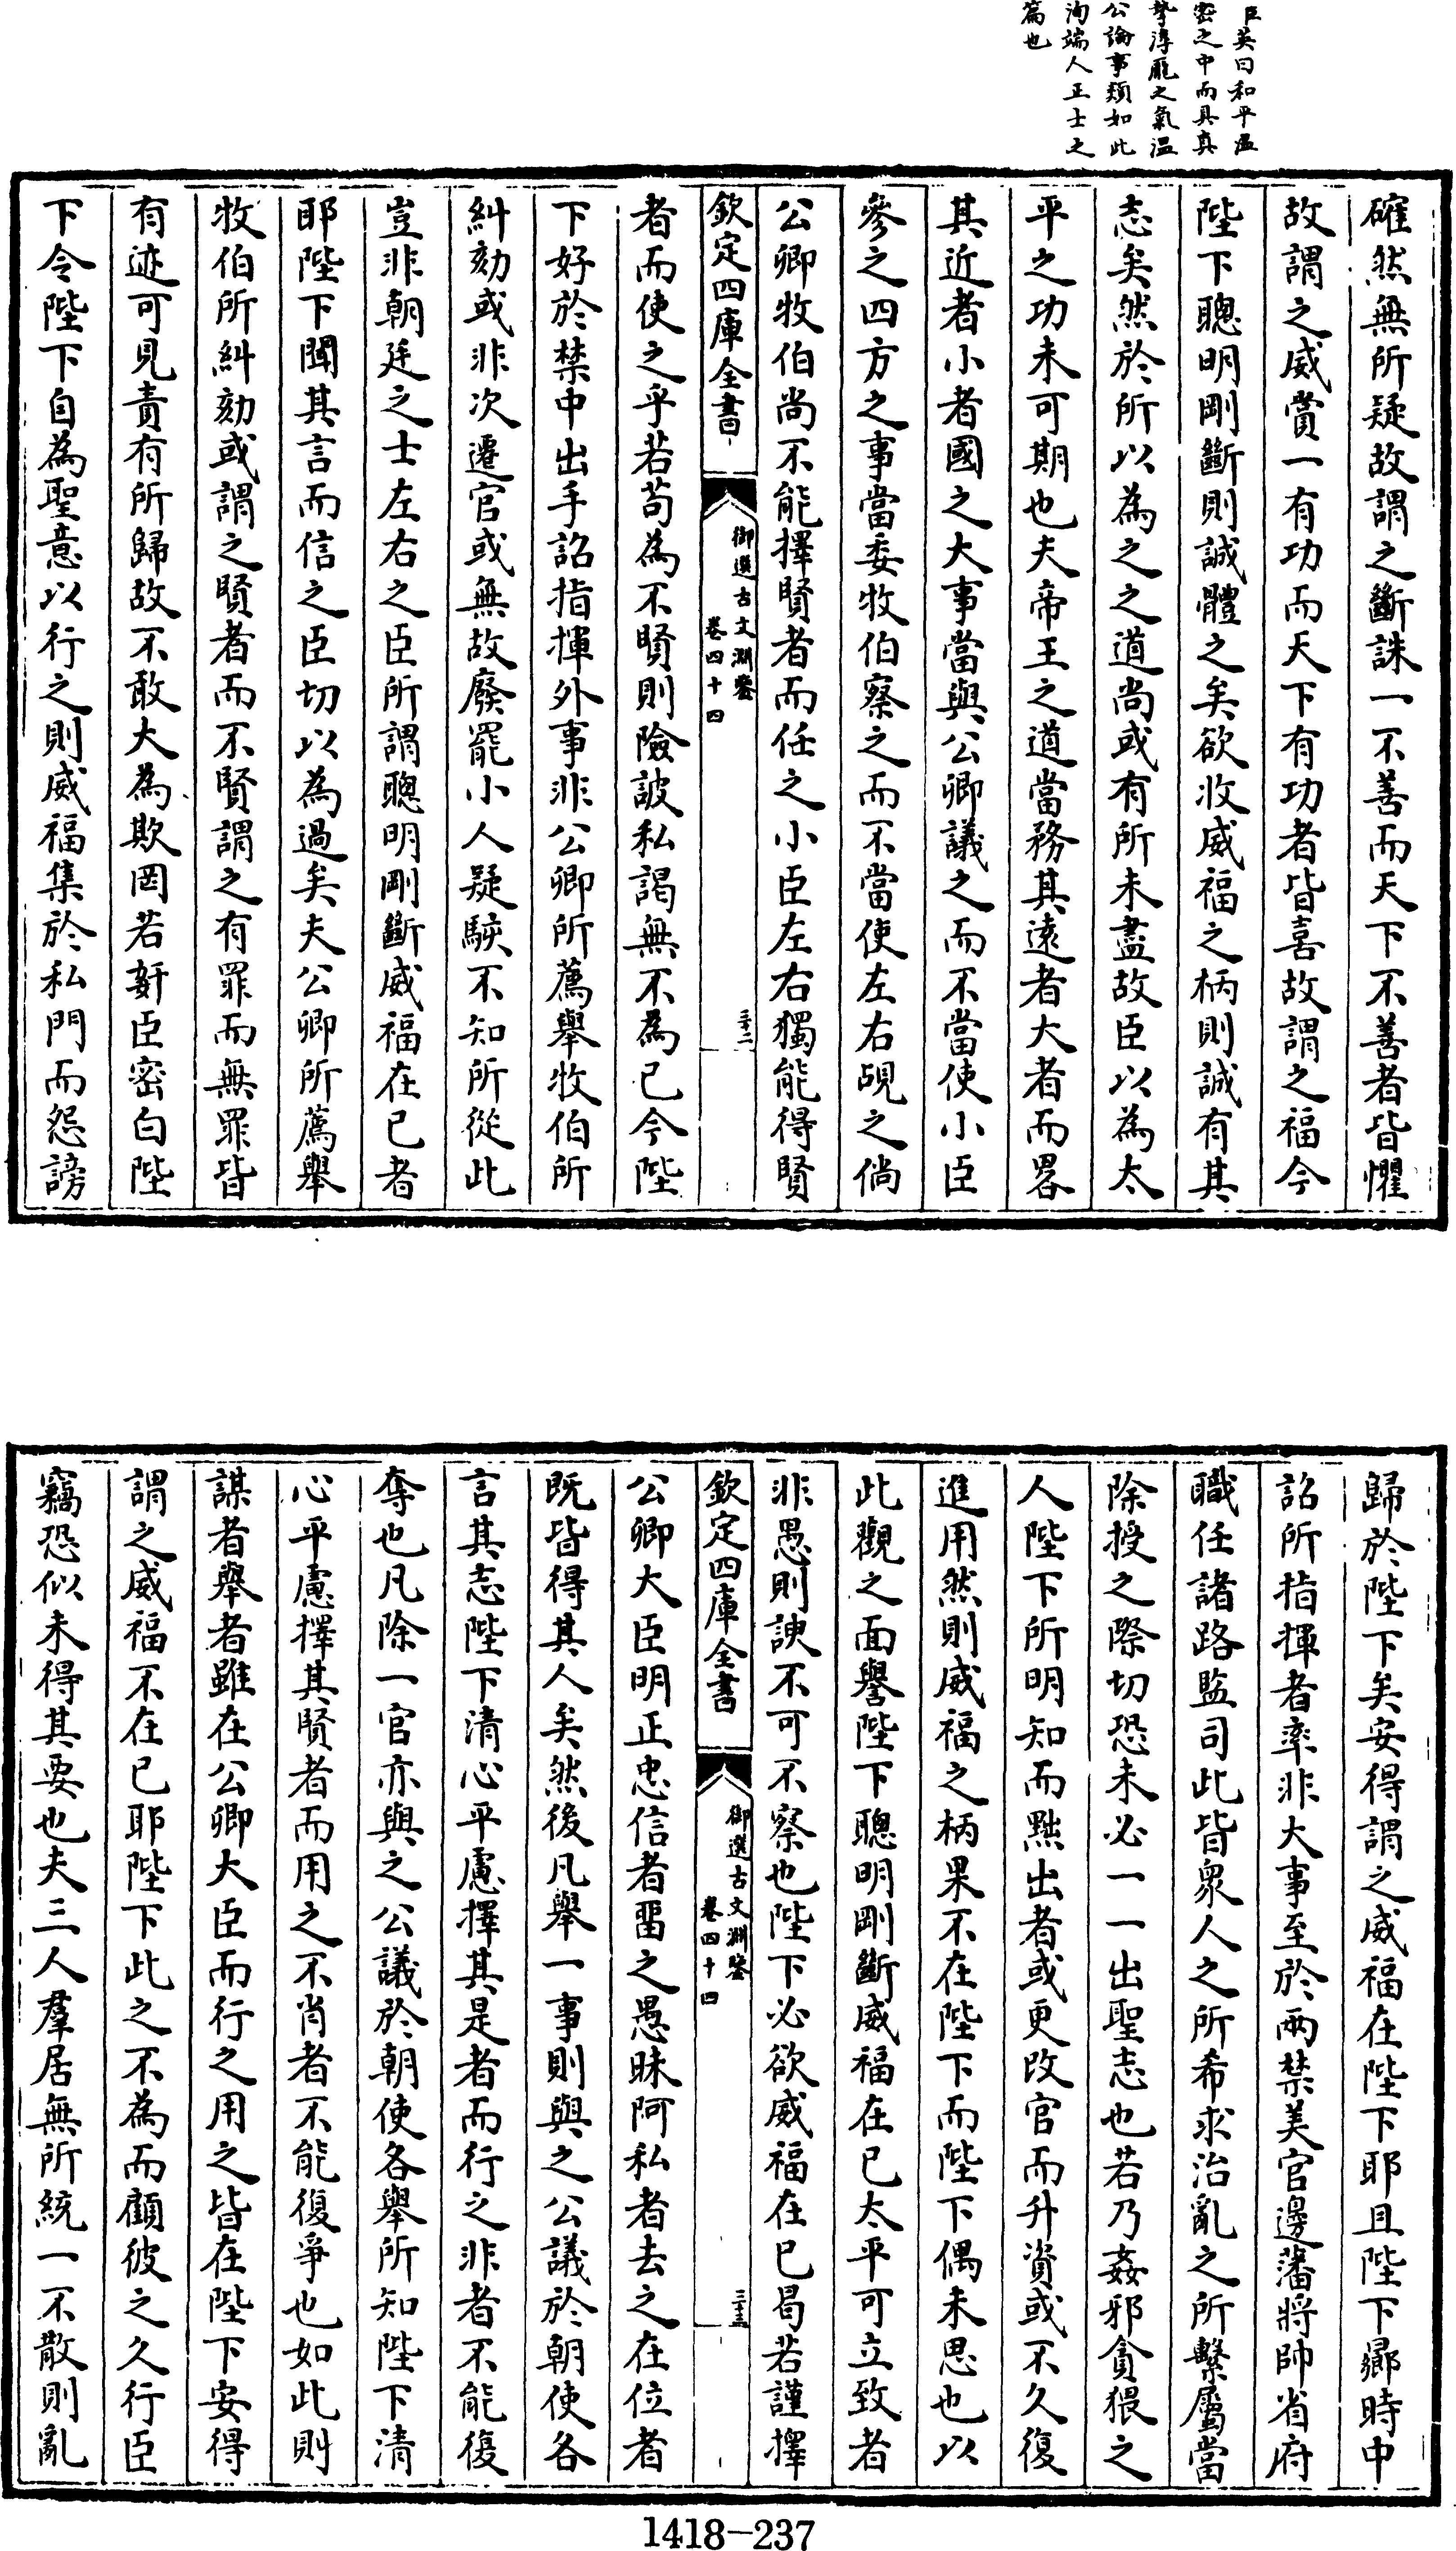 臣英曰和平温
密之中而具真
摯淳龎之氣温
公論事類如此
洵端人正士之
篇也
確然無所疑故謂之斷誅一不善而天下不善者皆懼
故謂之威賞一有功而天下有功者皆喜故謂之福今
陛下聰明剛斷則誠體之矣欲收威福之柄則誠有其
志矣然於所以為之之道尚或有所未盡故臣以為太
平之功未可期也夫帝王之道當務其遠者大者而畧
其近者小者國之大事當與公卿議之而不當使小臣
參之四方之事當委牧伯察之而不當使左右覘之倘
公卿牧伯尚不能擇賢者而任之小臣左右獨能得賢
欽定四庫全書
御選古文淵鑒
卷四十四
三十二
者而使之乎若苟為不賢則險詖私謁無不為已今陛
下好於禁中出手詔指揮外事非公卿所薦舉牧伯所
糾劾或非次遷官或無故廢罷小人疑駭不知所從此
豈非朝廷之士左右之臣所謂聰明剛斷威福在已者
耶陛下聞其言而信之臣切以為過矣夫公卿所薦舉
牧伯所糾劾或謂之賢者而不賢謂之有罪而無罪皆
有迹可見責有所歸故不敢大為欺罔若姧臣密白陛
下令陛下自為聖意以行之則威福集於私門而怨謗
歸於陛下矣安得謂之威福在陛下耶且陛下曏時中
詔所指揮者率非大事至於兩禁美官邊藩將帥省府
職任諸路監司此皆衆人之所希求治亂之所繫屬當
除授之際切恐未必一一出聖志也若乃姦邪貪猥之
人陛下所明知而黜出者或更改官而升資或不久復
進用然則威福之柄果不在陛下而陛下偶未思也以
此觀之面譽陛下聰明剛斷威福在已太平可立致者
非愚則諛不可不察也陛下必欲威福在已曷若謹擇
欽定四庫全書
御選古文淵鑒
卷四十四
三十三
公卿大臣明正忠信者畱之愚昧阿私者去之在位者
既皆得其人矣然後凡舉一事則與之公議於朝使各
言其志陛下清心平慮擇其是者而行之非者不能復
奪也凡除一官亦與之公議於朝使各舉所知陛下清
心平慮擇其賢者而用之不肖者不能復爭也如此則
謀者舉者雖在公卿大臣而行之用之皆在陛下安得
謂之威福不在已耶陛下此之不為而顧彼之久行臣
竊恐似未得其要也夫三人羣居無所統一不散則亂
1418-237